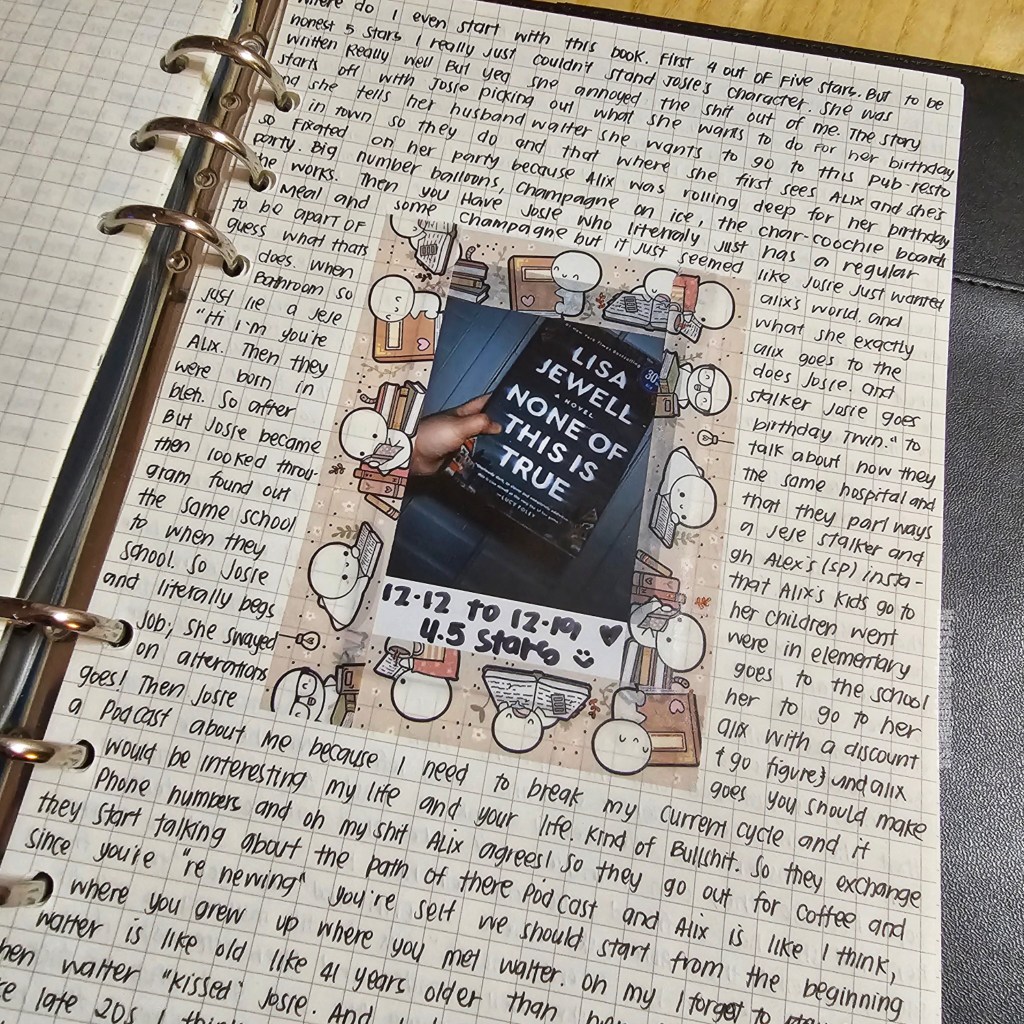 Where do I even start with this book. First 4 out of five stars. But to be
honest 5 stars I really just couldn't stand Josie's character. She was
written Really well But yea she annoyed the shit out of me. The story
starts off with Josie picking out what she wants to do for her birthday
nd she tells her husband walter she wants to go to this Pub-resto
in town so they do and that where she first sees Alix and she's
so Fixated on her party because Alix was rolling deep for her birthday
party. Big number balloons, champagne on ice, the char-coochie boards
he works. Then you Have Josie who literaly Just has a regular
meal and some champagne but it just seemed like Josie Just wanted
to be apart of alix's world. and
guess what thats what she exactly
does. When alix goes to the
Bathroom so does Josie. and
Just lie a Jese stalker Josie goes
"Hi I'm you're birthday Twin." to
Alix. Then they talk about how they
were born in the same hospital and
bleh. So after that they part ways
But Josie became a Jese stalker and
then looked throu- gh Alex's (SP) insta-
gram found out that Alix's kids go to
the same school her children went
to when they were in elementary
school. So Josie goes to the school
and literally begs her to go to her
Job; she swayed alix with a discount
on alterations {go figure} and alix
goes! Then Josie goes you should make
a Podcast about me because I need to break my current cycle and it
would be interesting my life and your life. Kind of Bullshit. So they exchange
Phone numbers and oh my shit Alix agrees! So they go out for coffee and
they start talking about the path of there Podcast and Alix is like I think,
since you're "re newing" you're self we should start from the beginning
where you grew up where you met walter. oh my I forgot to
walter is like old like 41 years older than
hen walter "kissed" Josie. And
late 20s I
#1 New York Times Bestselling
LISA
JEWELL
A NOVEL
NONE OF
THIS IS
TRUE
—LUCY FOLEY
12·12 to 12·19
4.5 stars